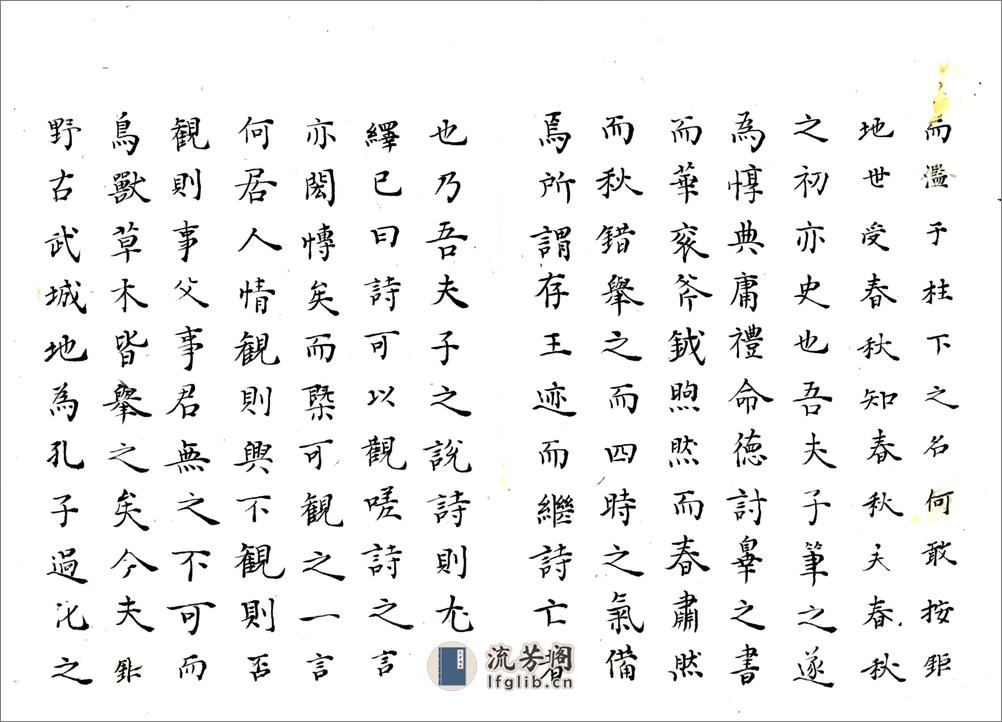 而濫予柱下之名何敢按鉅
地世受春秋知春秋夫春秋
之初亦史也吾夫子筆之遂
為惇典庸禮命德討辠之書
而華袞斧鉞煦然而春肅然
而秋錯舉之而四時之氣備
焉所謂存王迹而繼詩亡者
也乃吾夫子之說詩則尤
繹已曰詩可以觀嗟詩之言
亦閎博矣而槩可觀之一言
何居人情觀則興不觀則否
觀則事父事君無之不可而
鳥獸草木皆舉之矣今夫鉅
野古武城地為孔子過化之
流芳阁
lfglib.cn